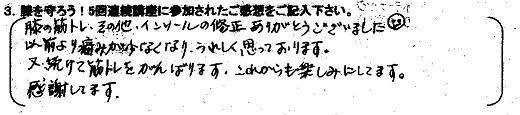 3. 膝を守ろう！5回連続講座に参加されたご感想をご記入下さい。
膝の筋トレ・その他・インソールの修正ありがとうございました
以前より痛みが少なくなり、うれしく思っております。
又、続けて筋トレをがんばります。これからも楽しみにしてます。
感謝してます。